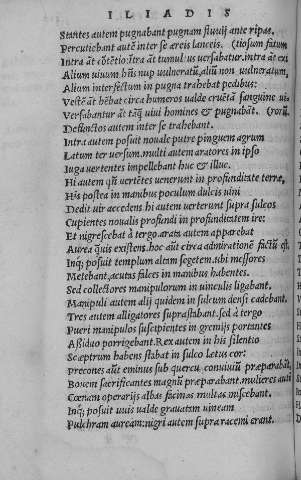 ILIADIS
Stantes autem pugnabant pugnam fluuij ante ripas.
Percutiebant autē inter se æreis lanceis. (tiosum fatum
Intra āt cōtētio: itra āt tumultus uersabatur. intra āt ex
Alium uiuum hn̄s nup uulneratū, aliū non uulneratum,
Alium interfectum in pugna trahebat pedibus:
Vestē āt hēbat circa humeros ualde cruētā sanguine ui-
Versabantur āt tāq̃ uiui homines & pugnabāt. (rorū.
Defunctos autem inter se trahebant.
Intra autem posuit nouale putre pinguem agrum
Latum ter uersum. multi autem aratores in ipso
Iuga uertentes impellebant huc & illuc.
Hi autem qn̄ uertētes uenerunt in profunditatē terræ,
His postea in manibus poculum dulcis uini
Dedit uir accedens hi autem uerterunt supra sulcos
Cupientes noualis profundi in profunditatem ire:
Et nigrescebat à tergo. aratæ autem apparebat
Aurea quis existens. hoc aūt circa admirationē factū est.
Inq; posuit templum altam segetem. ubi messores
Metebant, acutas falces in manibus habentes.
Sed collectores manipulorum in uinculis ligabant.
Manipuli autem alij quidem in sulcum densi cadebant.
Tres autem alligatores suprastabant. sed à tergo
Pueri manipulos suscipientes in gremijs portantes
Aßiduo porrigebant. Rex autem in his silentio
Sceptrum habens stabat in sulco lætus cor:
Precones aūt eminus sub quercu conuiuiū præparabāt,
Bouem sacrificantes magnū præparabant. mulieres auti
Cœnam operarijs albas farinas multas miscebant.
Inq; posuit uuis ualde grauatam uineam
Pulchram auream: nigri autem supra racemi erant.